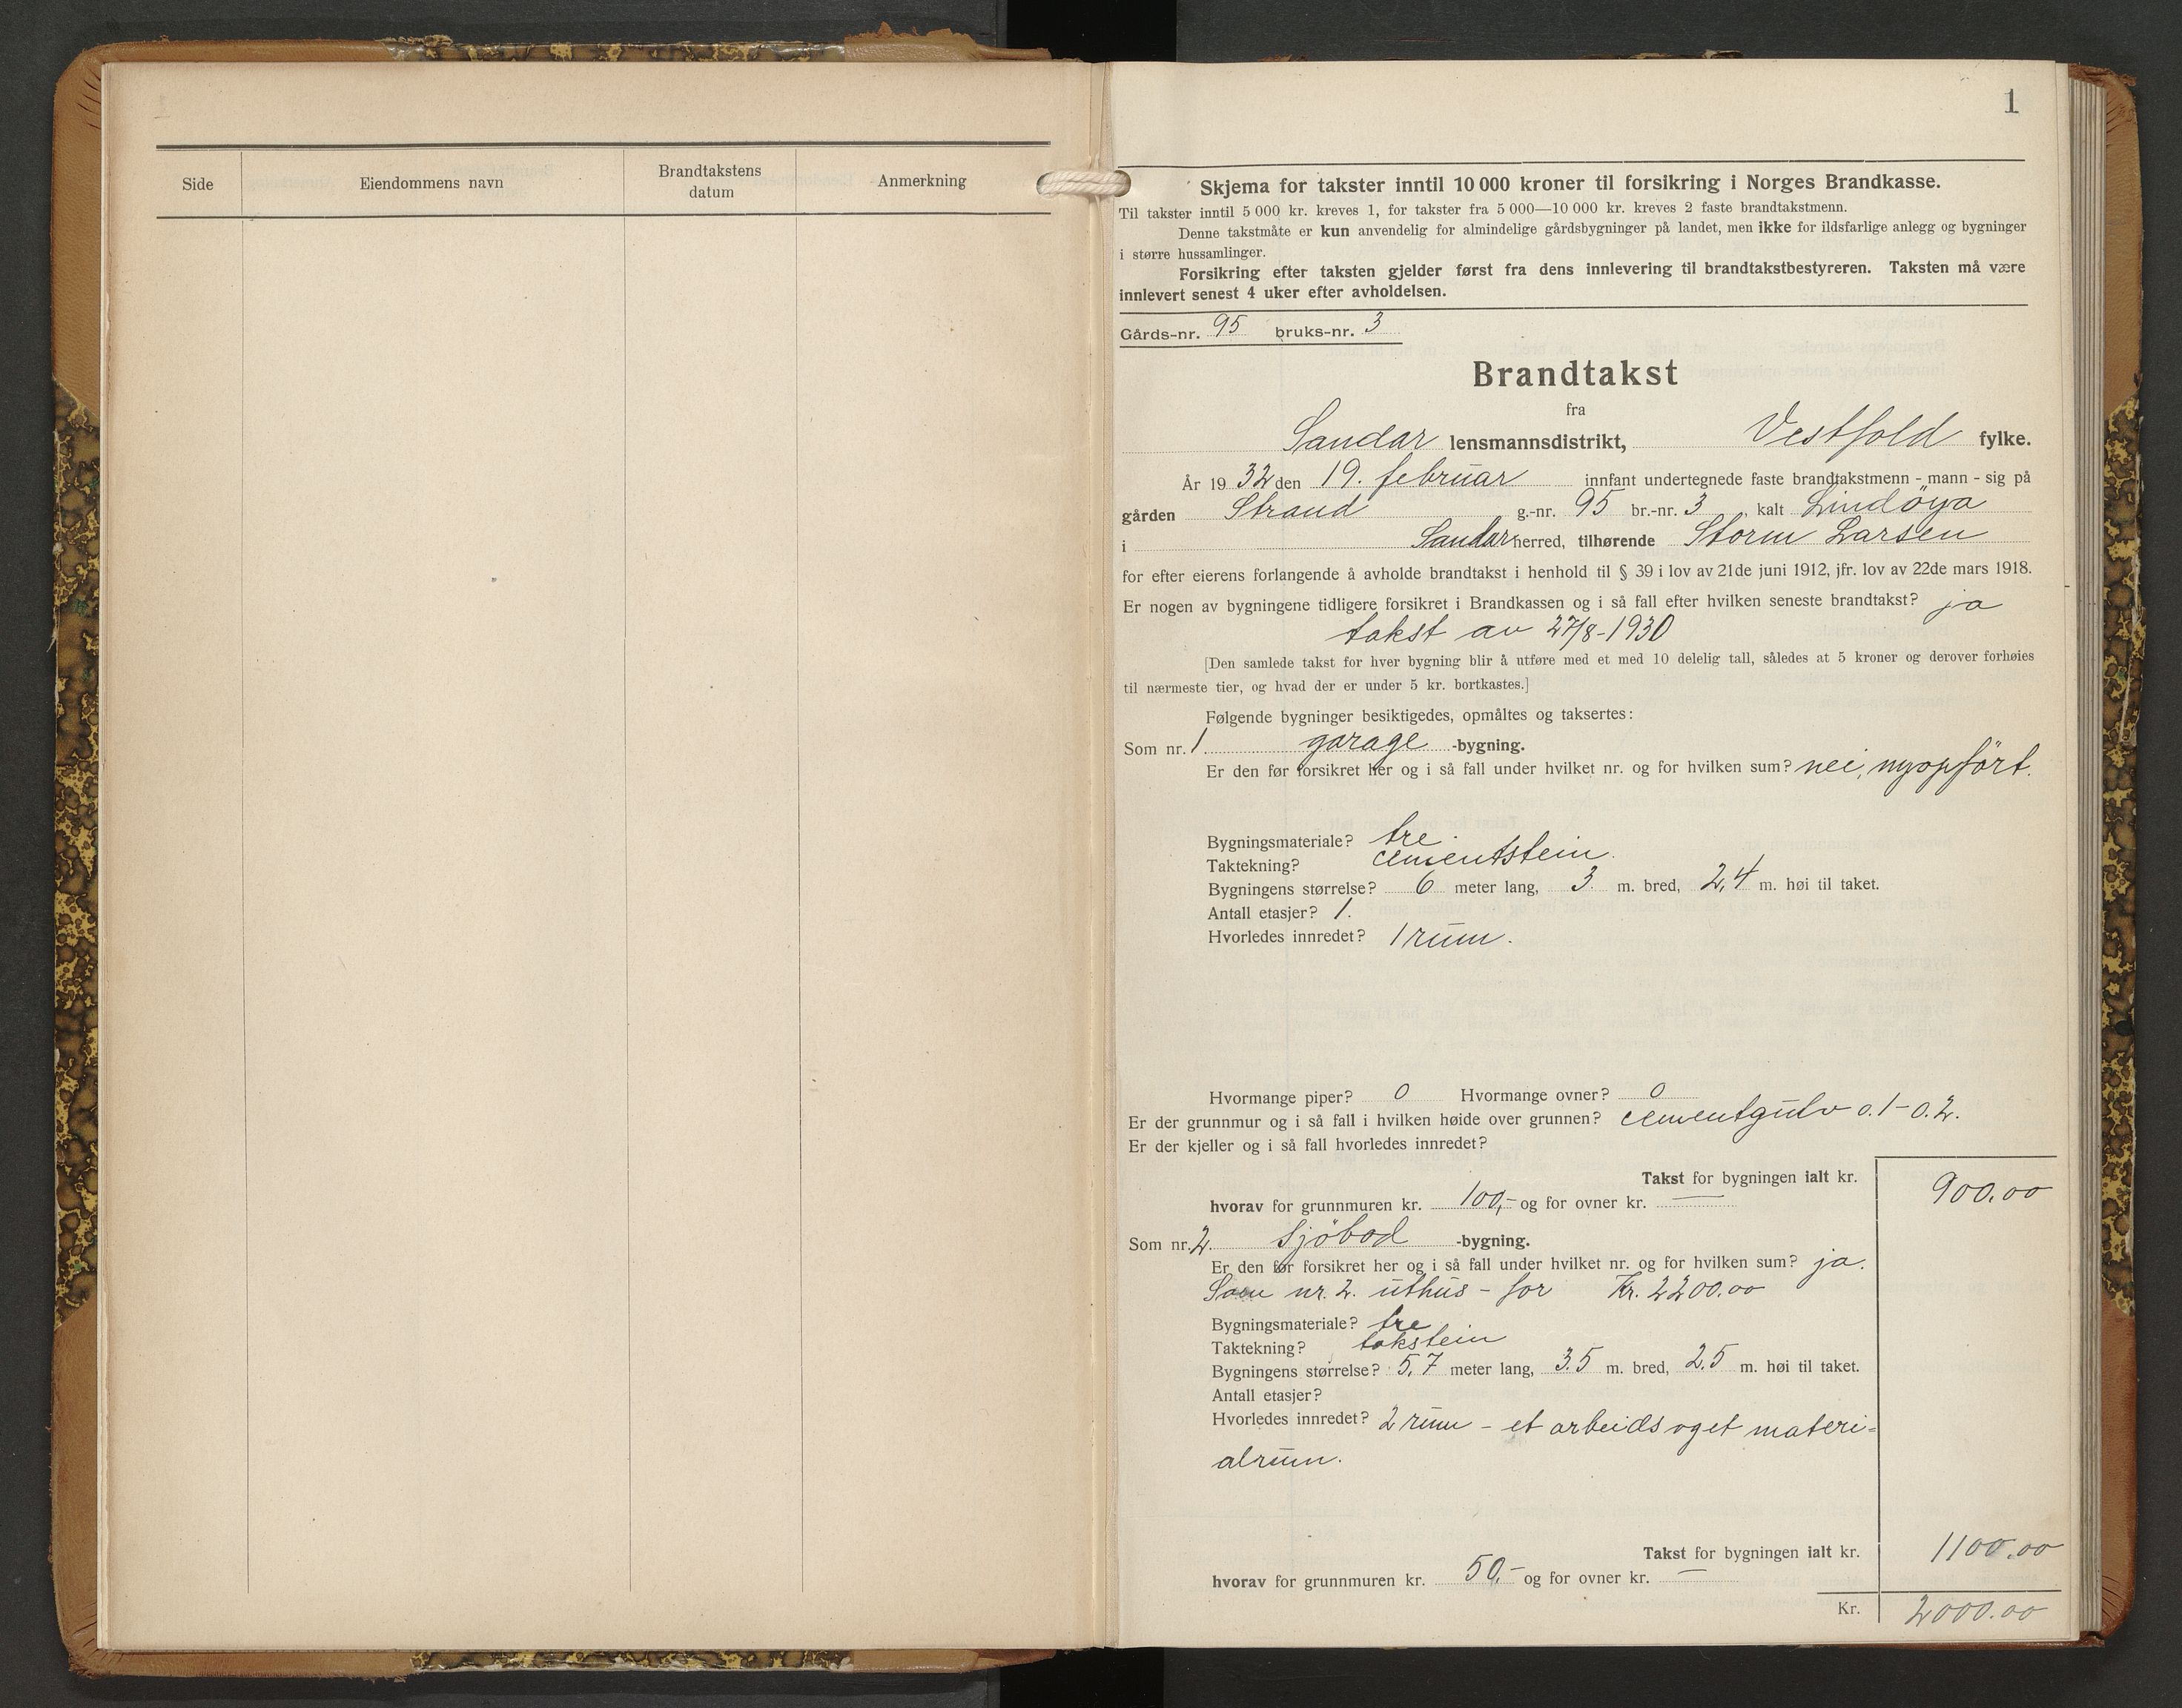 Side
Eiendommens navn
Brandtakstens
datum
Anmerkning
1
Skjema for takster inntil 10 000 kroner til forsikring i Norges Brandkasse.
Til takster inntil 5 000 kr. kreves 1, for takster fra 5 000—10 000 kr. kreves 2 faste brandtakstmenn.
Denne takstmåte er kun anvendelig for almindelige gårdsbygninger på landet, men ikke for ildsfarlige anlegg og bygninger
i større hussamlinger.
Forsikring efter taksten gjelder først fra dens innlevering til brandtakstbestyreren. Taksten må være
innlevert senest 4 uker efter avholdelsen.
Gårds-nr. 95 bruks-nr. 3
Brandtakst
fra
Sandar lensmannsdistrikt, Vestfold fylke.
År 1932 den 19. februar innfant undertegnede faste brandtakstmenn - mann - sig på
gården Strand g.-nr. 95 br.-nr. 3 kalt Lindöya
i Sandar herred, tilhørende Storm Larsen
for efter eierens forlangende å avholde brandtakst i henhold til § 39 i lov av 21de juni 1912, jfr. lov av 22de mars 1918.
Er nogen av bygningene tidligere forsikret i Brandkassen og i så fall efter hvilken seneste brandtakst? ja
takst av 27/8-1930
[Den samlede takst for hver bygning blir å utføre med et med 10 delelig tall, således at 5 kroner og derover forhøies
til nærmeste tier, og hvad der er under 5 kr. bortkastes.]
Følgende bygninger besiktigedes, opmåltes og taksertes:
Som nr. 1. garage -bygning.
Er den før forsikret her og i så fall under hvilket nr. og for hvilken sum? nei, nyopfört.
Bygningsmateriale? tre
Taktekning? cementstein.
Bygningens størrelse? 6 meter lang, 3 m. bred, 2,4 m. høi til taket.
Antall etasjer? 1.
Hvorledes innredet? 1 rum.
Hvormange piper? 0 Hvormange ovner? 0
Er der grunnmur og i så fall i hvilken høide over grunnen? cementgulv 0.1-0.2.
Er der kjeller og i så fall hvorledes innredet?
Takst for bygningen ialt kr. 900.00
hvorav for grunnmuren kr. 100,- og for ovner kr. —
Som nr. 2. Sjöbod -bygning.
Er den før forsikret her og i så fall under hvilket nr. og for hvilken sum? ja.
Som nr. 2. uthus - for Kr. 2200.00
Bygningsmateriale? tre
Taktekning? takstein
Bygningens størrelse? 5,7 meter lang, 3.5 m. bred, 2.5 m. høi til taket.
Antall etasjer?
Hvorledes innredet? 2 rum - et arbeids og et materi=
alrum.
Takst for bygningen ialt kr. 1100.00
hvorav for grunnmuren kr. 50,- og for ovner kr. —
Kr. 2000.00